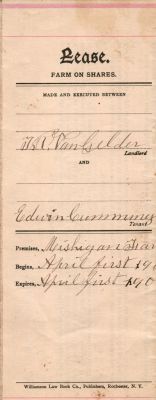 Lease.
FARM ON SHARES.
MADE AND EXECUTED BETWEEN
VanGelder
Landlord
AND
Edwin Cummings
Tenant
Premises, Mishigan Farm
Begins, April first 190
Expires, April first 190
Williamson Law Book Co., Publishers, Rochester, N. Y.